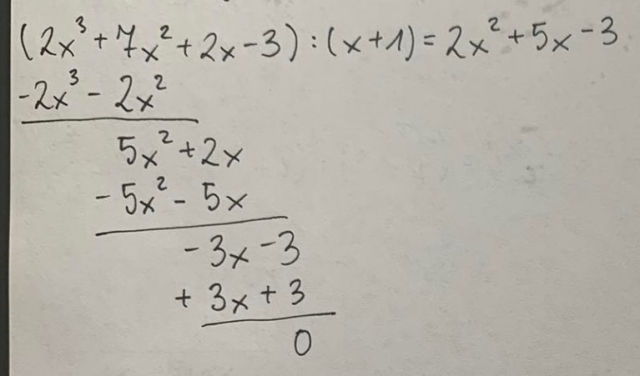 (2x³ + 7x² + 2x - 3) : (x + 1) = 2x² + 5x - 3
-2x³ - 2x²
5x² + 2x
- 5x² - 5x
- 3x - 3
+ 3x + 3
0